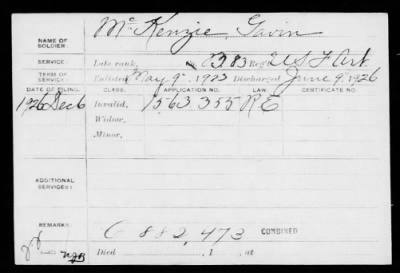 NAME OF SOLDIER: McKenzie, Gavin
SERVICE: Late rank, Co. 383 Reg't U S F Art.
TERM OF SERVICE: Enlisted May 9 1923 Discharged June 9, 1926
DATE OF FILING. CLASS. APPLICATION NO. LAW. CERTIFICATE NO.
1926 Dec 6 Invalid, 1563 355 RE
Widow,
Minor,
ADDITIONAL SERVICES:
REMARKS: C 882,473 COMBINED
Died , 1 , at